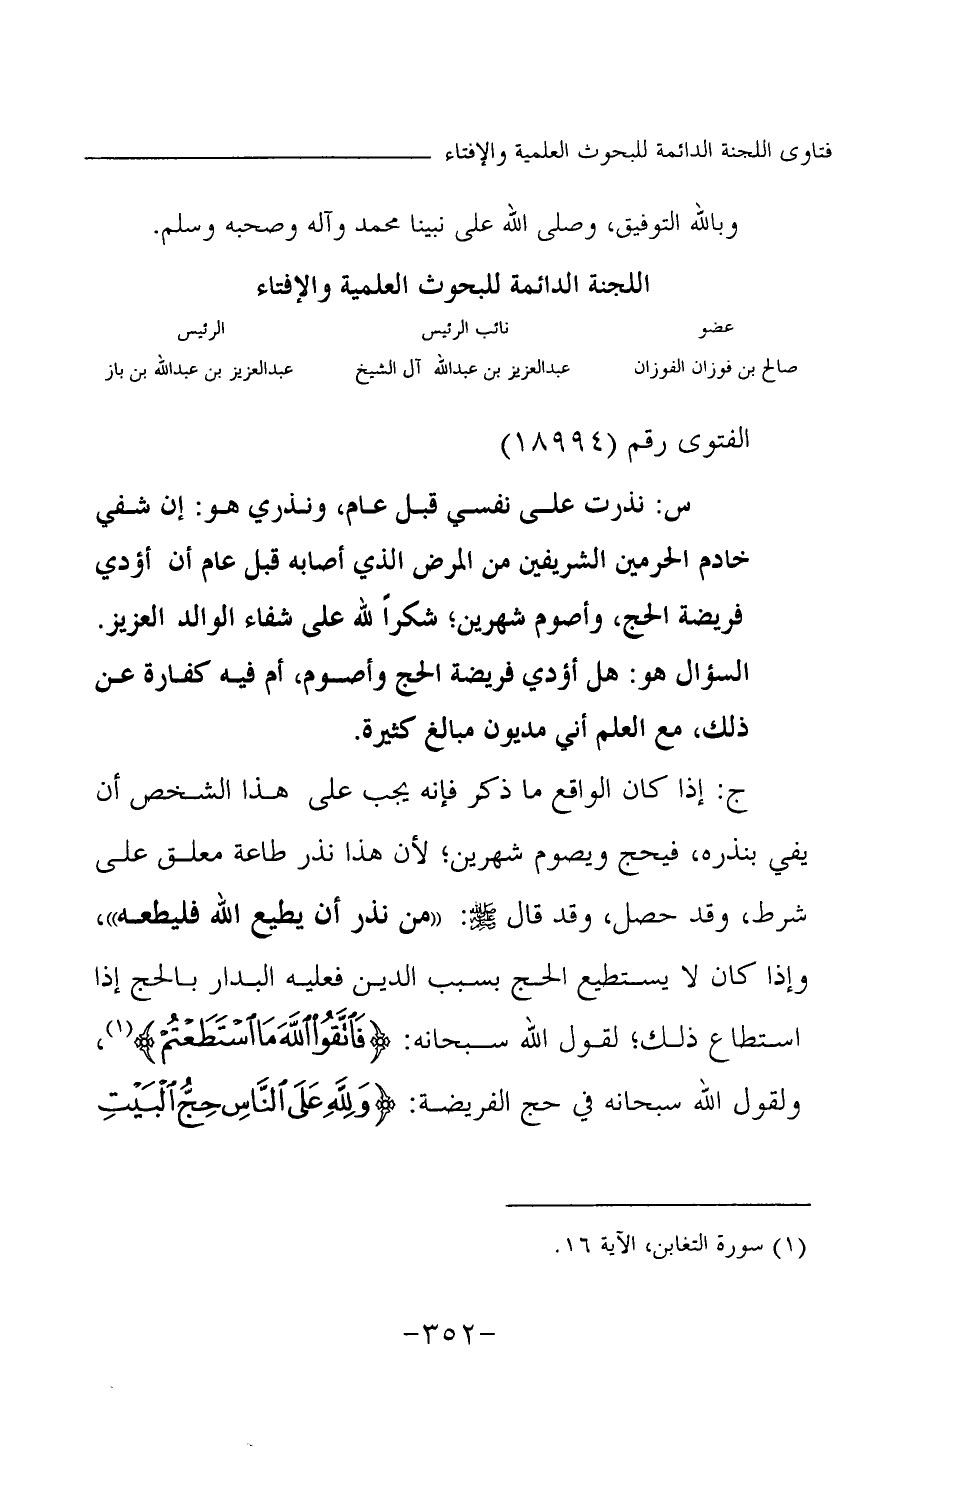 فتاوى اللجنة الدائمة للبحوث العلمية والإفتاء
وبالله التوفيق، وصلى الله على نبينا محمد وآله وصحبه وسلم.
اللجنة الدائمة للبحوث العلمية والإفتاء
عضو نائب الرئيس الرئيس
صالح بن فوزان الفوزان عبدالعزيز بن عبدالله آل الشيخ عبدالعزيز بن عبدالله بن باز
الفتوى رقم (١٨٩٩٤)
س: نذرت على نفسي قبل عام، ونذري هو: إن شفي
خادم الحرمين الشريفين من المرض الذي أصابه قبل عام أن أؤدي
فريضة الحج، وأصوم شهرين؛ شكراً لله على شفاء الوالد العزيز.
السؤال هو: هل أؤدي فريضة الحج وأصوم، أم فيه كفارة عن
ذلك، مع العلم أني مديون مبالغ كثيرة.
ج: إذا كان الواقع ما ذكر فإنه يجب على هذا الشخص أن
يفي بنذره، فيحج ويصوم شهرين؛ لأن هذا نذر طاعة معلق على
شرط، وقد حصل، وقد قال ﷺ: «من نذر أن يطيع الله فليطعه»،
وإذا كان لا يستطيع الحج بسبب الدين فعليه البدار بالحج إذا
استطاع ذلك؛ لقول الله سبحانه: ﴿فَاتَّقُوا اللَّهَ مَا اسْتَطَعْتُمْ﴾(١)،
ولقول الله سبحانه في حج الفريضة: ﴿وَلِلَّهِ عَلَى النَّاسِ حِجُّ الْبَيْتِ
(١) سورة التغابن، الآية ١٦.
-٣٥٢-